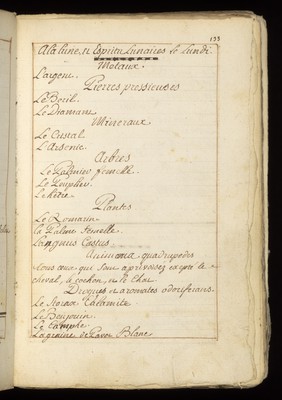 133
A la lune, et Esprits Lunaires le Lundi
Metaux.
L'argent.
Pierres pressieuses
Le Beril.
Le Diamant
Mineraux
Le Cristal
L'Arsenic.
Arbres
Le Palmier femelle.
Le Peuplier.
Le Hetre.
Plantes
Le Romarin
la Palme
L'agnus Castus
Animaux quadrupedes
tous ceux qui sont aprivoisez excepté le
cheval, le cochon, et le Chat
Drogues et aromates odoriferans.
Le Storax Calamite.
Le Benjouin.
Le Camphre.
La graine de Pavot Blanc